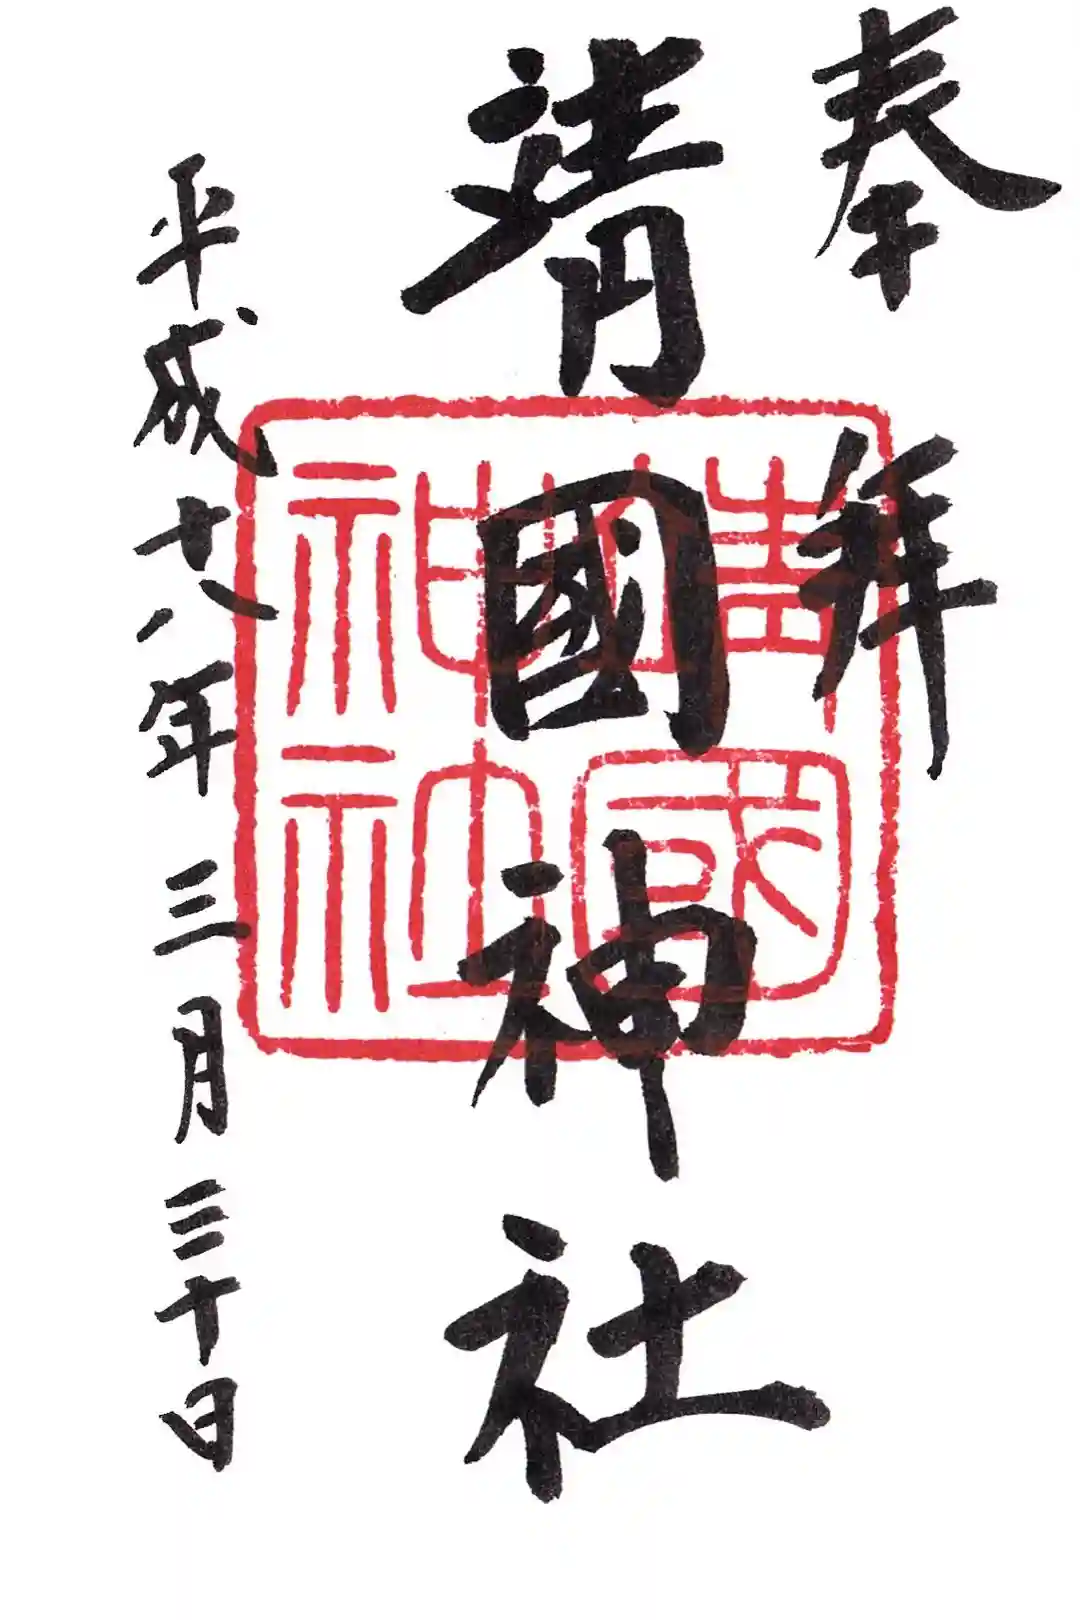 奉拜
靖國神社
平成十八年三月三十日
靖國
神社